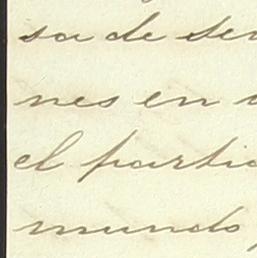 sa de ser
nes en
el partic
mundo,